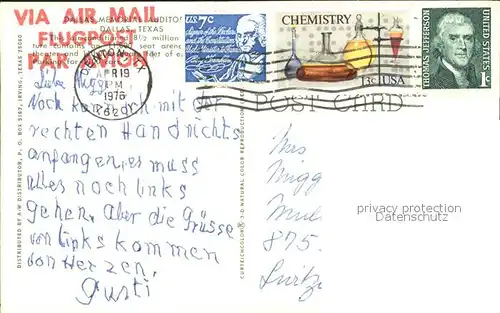 VIA AIR MAIL
FLUGPOST
PAR AVION
DALLAS MEMORIAL AUDITORIUM
DALLAS, TEXAS
7c
CHEMISTRY
13c USA
THOMAS JEFFERSON
UNITED STATES
1c
APR 19
PM
1976
POST CARD
Liebe
Noch kann ich mit der
rechten Hand nichts
anfangen, es muss
alles noch links
gehen. Aber die Grüsse
von links kommen
von Herzen.
Gusti
DISTRIBUTED BY A-W DISTRIBUTOR, P. O. BOX 3187, IRVING, TEXAS
CURTEICHCOLOR® 3-D NATURAL COLOR REPRODUCTION
Mrs
Migg
Mul
875.
privacy protection
Datenschutz